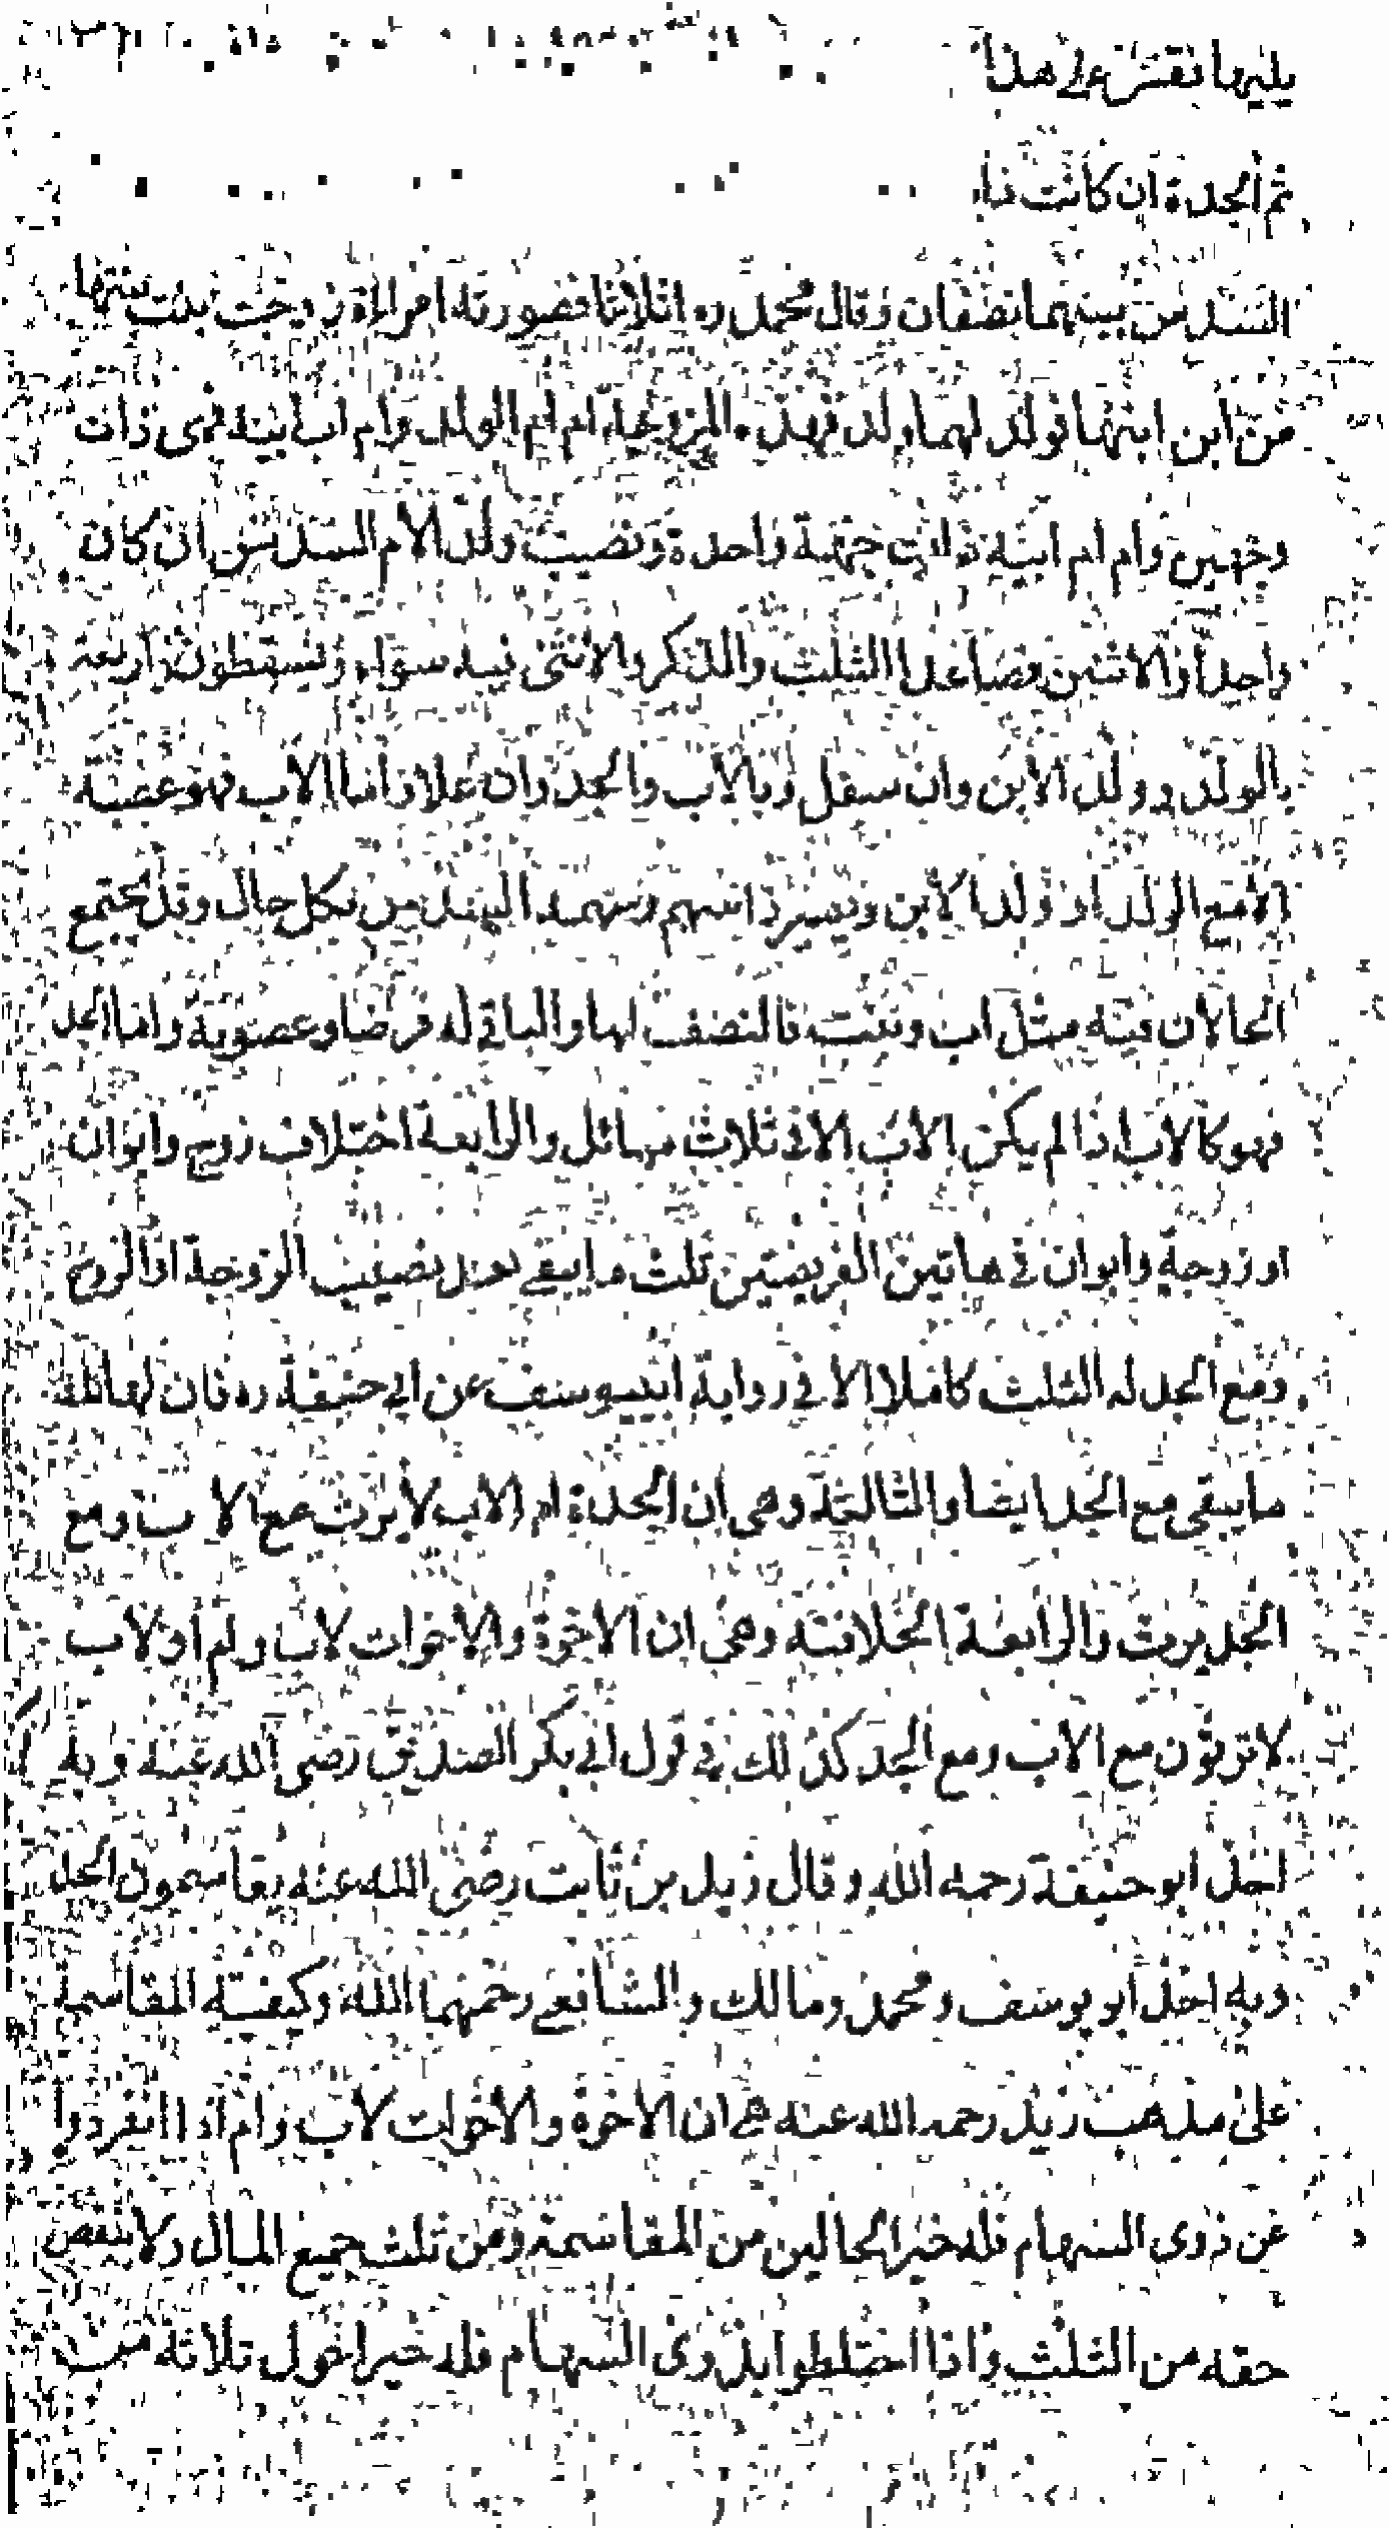 يليهما نقش على هذا
ثم الجدة ان كانت ذا
السدس بينهما نصفان وقال محمد ره اثلاثا فصورته امراءة زوجت بنت بنتها
من ابن ابنها فولد لهما ولد فهذه المزوجة ام ام الولد وام اب ابيه فهى ذات
وجهين وام ام ابيه ذات جهة واحدة ونصيب ولد الام السدس ان كان
واحدا والاثنين فصاعدا الثلث والذكر والانثى فيه سواء ويسقطون باربعة
بالولد وولد الابن وان سفل وبالاب والجد وان علا واما الاب فهو عصبة
الا مع الولد او ولد الابن وسهمه السدس بكل حال وقد يجتمع
الحالان فيه مثل اب وبنت فالنصف لها والباقي له فرضا وعصوبة واما الجد
فهو كالاب اذا لم يكن الاب الا في ثلاث مسائل والرابعة اختلاف زوج وابوان
او زوجة وابوان في هاتين الفريضتين ثلث ما يبقى بعد نصيب الزوجة او الزوج
ومع الجد له الثلث كاملا الا في رواية ابيوسف عن ابي حنيفة ره فان لها ثلث
ما يبقى مع الجد ايضا والثالثة وهى ان الجدة ام الاب لا يرث مع الاب ومع
الجد يرث والرابعة الخلافية وهى ان الاخوة والاخوات لاب وام او لاب
لا يرثون مع الاب ومع الجد كذلك في قول ابي بكر الصديق رضى الله عنه وبه
اخذ ابو حنيفة رحمه الله وقال زيد بن ثابت رضى الله عنه يقاسمون الجد
وبه اخذ ابو يوسف ومحمد ومالك والشافعى رحمهما الله وكيفية المقاسمة
على مذهب زيد رحمه الله عنه هى ان الاخوة والاخوات لاب وام اذا انفردوا
عن ذوى السهام فله خير الحالين من المقاسمة ومن ثلث جميع المال ولا ينقص
حقه من الثلث واذا اختلطوا بذوى السهام فله خير احوال ثلاثة من